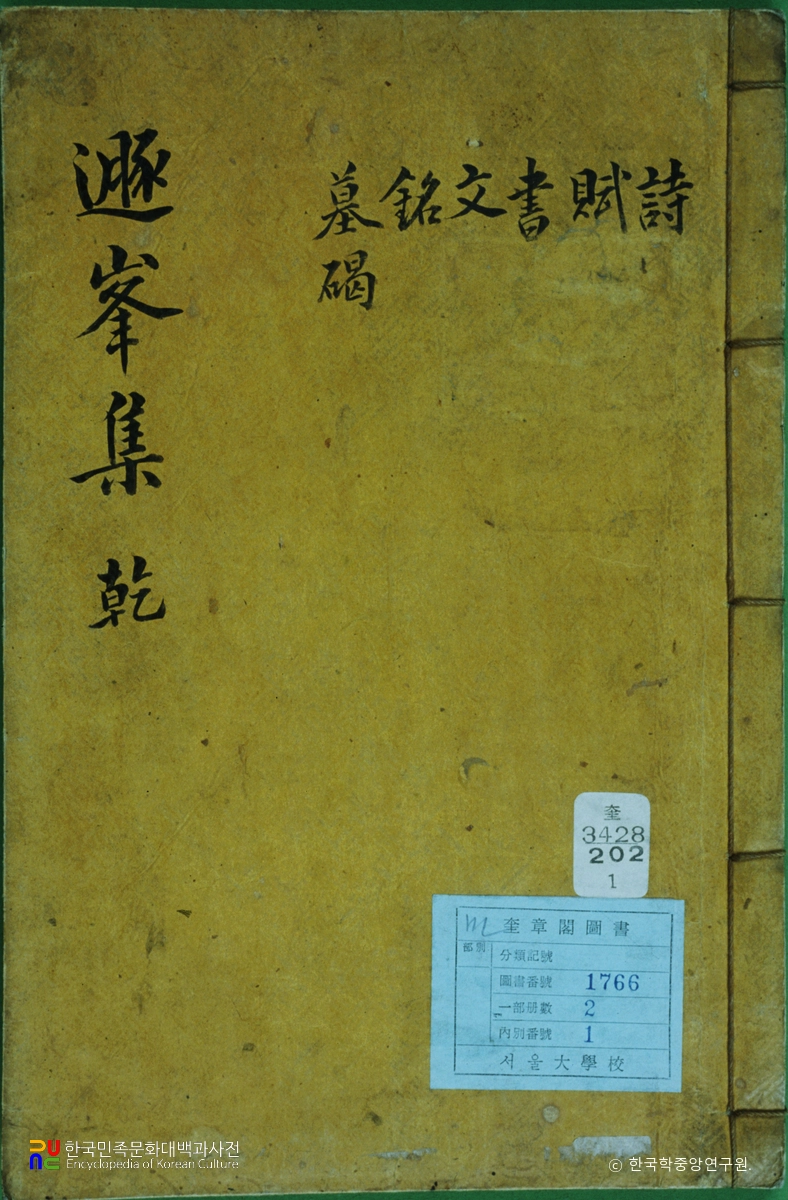 詩
賦
書
文
銘
墓碣
遯峯集 乾
奎
3428
202
1
奎章閣圖書
部別
分類記號
圖書番號 1766
一部册數 2
內別番號 1
서울大學校
한국민족문화대백과사전
Encyclopedia of Korean Culture
ⓒ 한국학중앙연구원